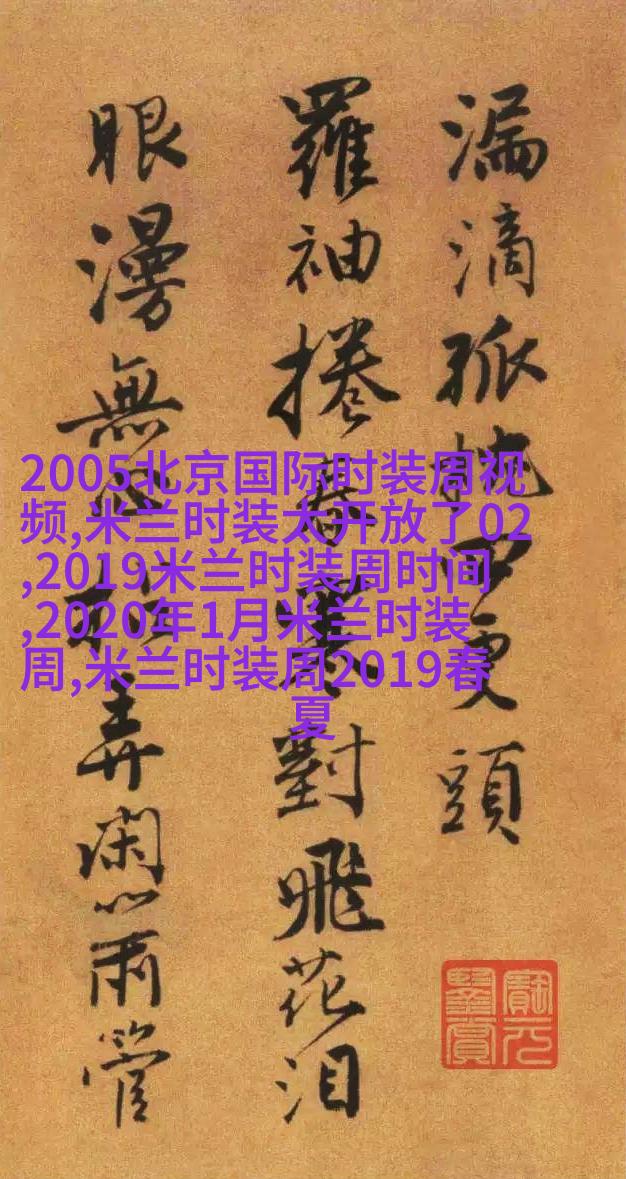 漏滴孤枕四更頭
羅袖捲春寒對飛花泪
眼漫無心弄閑心雨管
2005北京国际时装周视
频,米兰时装太开放了02
,2019米兰时装周时间
,2020年1月米兰时装
周,米兰时装周2019春
夏